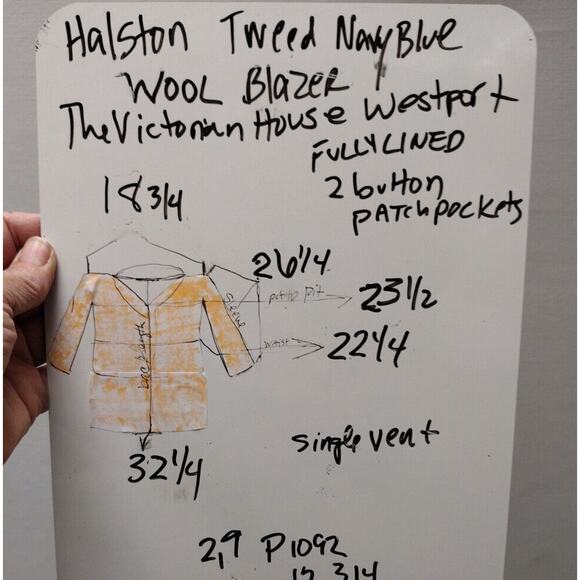 Halston Tweed Navy Blue
WOOL BLAZER
The Victorian House Westport
FULLY LINED
2 button
PATCH POCKETS
18 3/4
26 1/4
pit to pit
23 1/2
sleeve
waist
22 1/4
back length
32 1/4
single vent
2,9 P1092
12 3/4